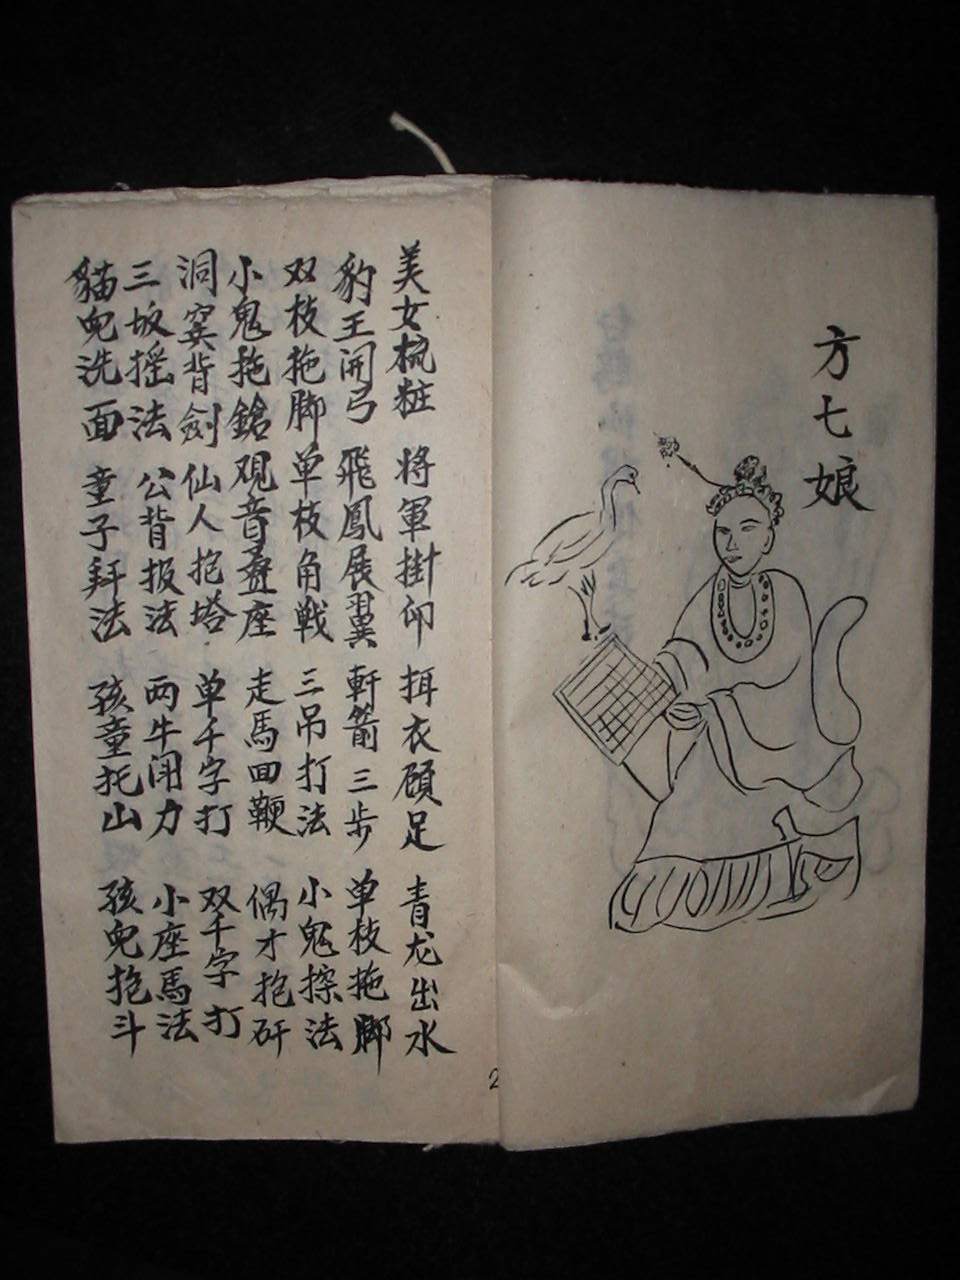 方七娘
美女梳粧 将軍掛印 挕衣顾足 青龙出水
豹王開弓 飛鳳展翼 軒箭三步 单枝拖脚
双枝拖脚 单枝角戦 三吊打法 小鬼探法
小鬼拖鎗 观音座 走馬回鞭 偶才抱矸
洞背劍 仙人抱塔 单千字打 双千字打
三坂摇法 公背扳法 两牛力 小座馬法
貓皃洗面 童子拜法 孩童托山 孩皃抱斗
2